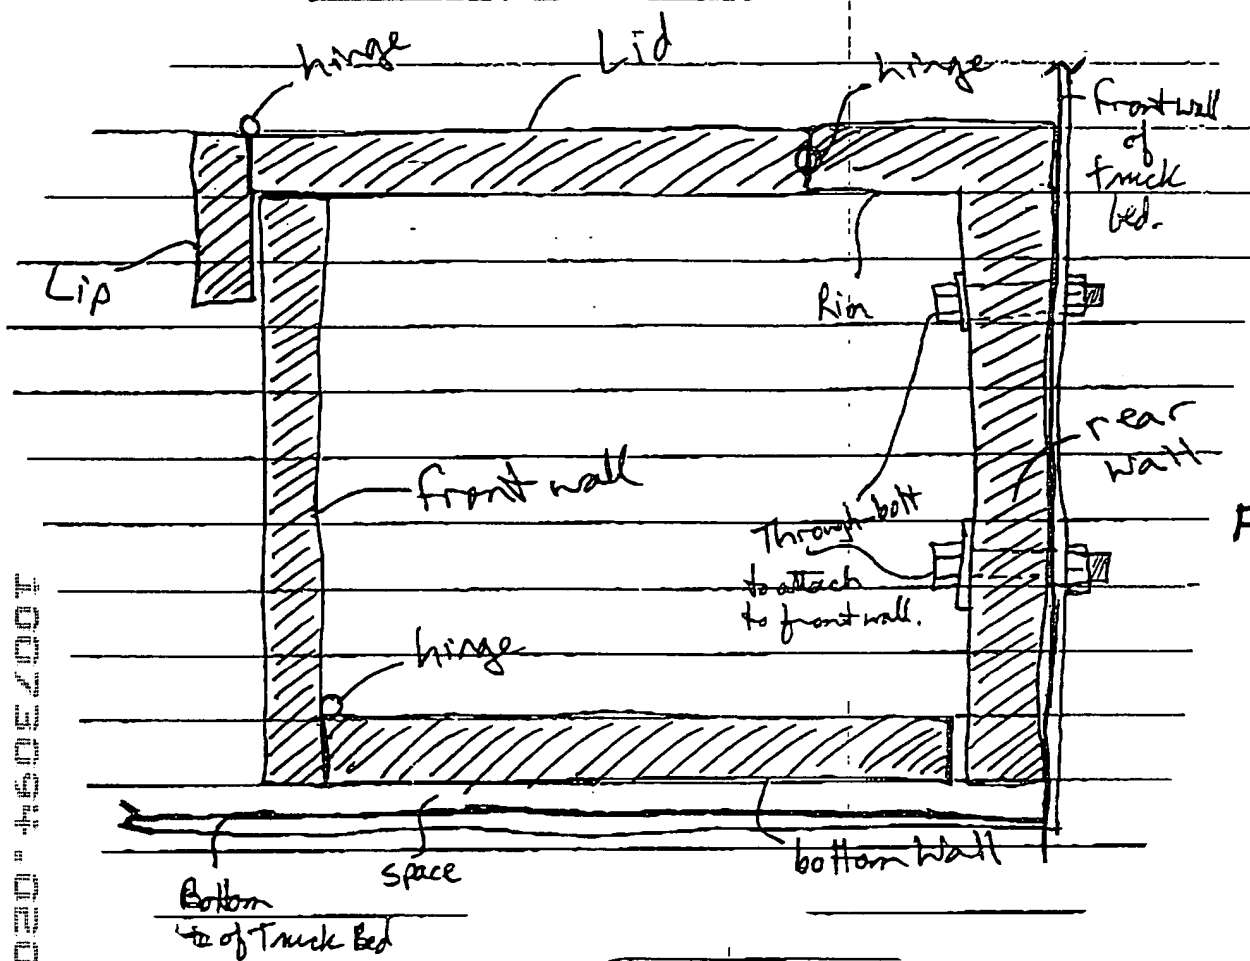 hinge
Lid
hinge
front wall
of
truck
bed.
Lip
Rim
rear
wall
front wall
Through-bolt
to attach
to front wall.
hinge
space
bottom wall
Bottom
of Truck Bed
F